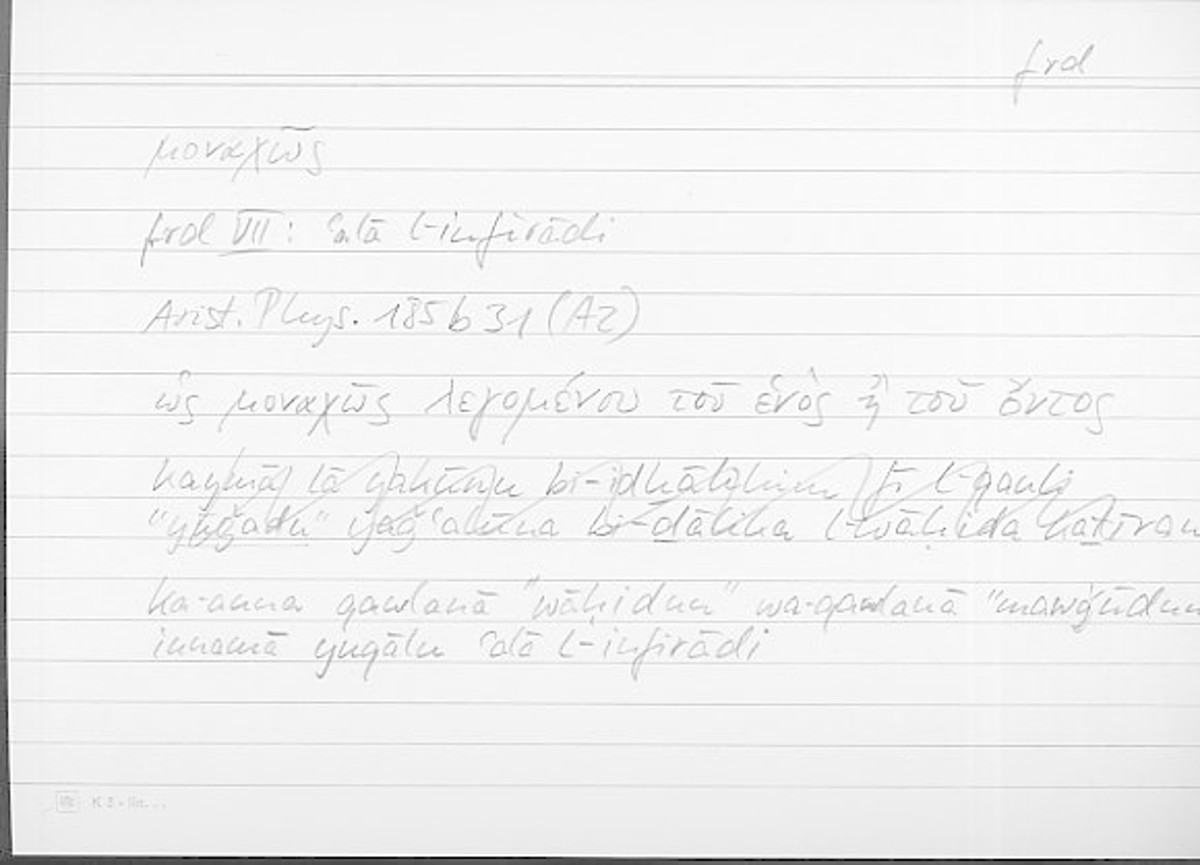 frd
μοναχῶς
frd VII: ʿalā l-infirādi
Arist. Phys. 185 b 31 (A2)
ὡς μοναχῶς λεγομένου τοῦ ἑνὸς ἢ τοῦ ὄντος
kaymā lā yakūnū bi-idḫālihim fī l-qauli
"yūǧadu" yaǧʿalūna bi-ḏālika l-wāḥida kaṯīran
ka-anna qawlanā "wāḥidun" wa-qawlanā "mawǧūdun
innamā yuqālu ʿalā l-infirādi
K 5